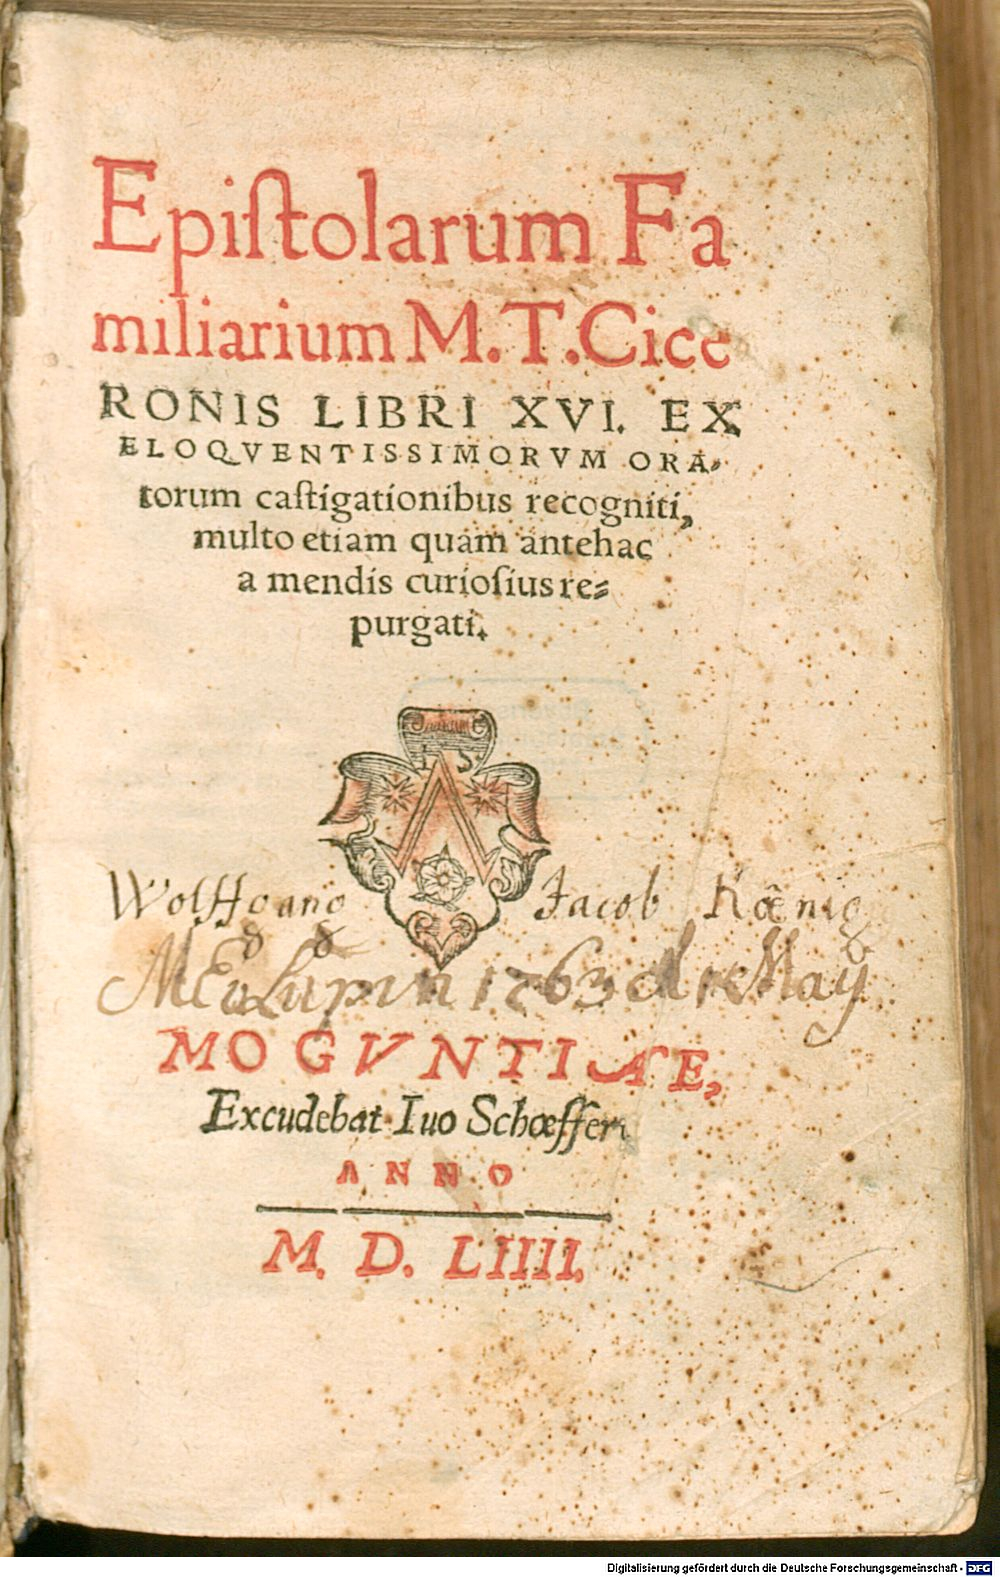 Epiſtolarum Fa
miliarium M.T.Cice
RONIS LIBRI XVI. EX
ELOQVENTISSIMORVM ORA⸗
torum caſtigationibus recogniti,
multo etiam quàm antehac
a mendis curioſius re⸗
purgati.
I S
Wolffgang Jacob Kœnig
1763 d 1 May
MOGVNTIAE,
Excudebat Iuo Schœffer
ANNO
M. D. LIIII.
Digitalisierung gefördert durch die Deutsche Forschungsgemeinschaft - DFG